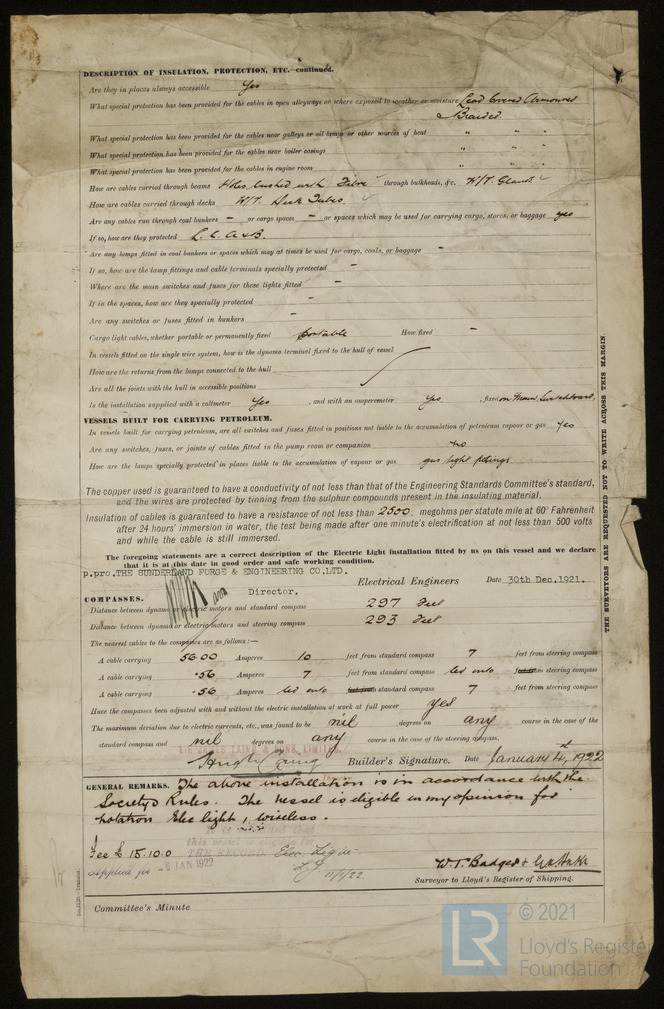 DESCRIPTION OF INSULATION, PROTECTION, ETC.—continued.
Are they in places always accessible Yes
What special protection has been provided for the cables in open alleyways or where exposed to weather or moisture Lead Covered Armoured
& Braided.
What special protection has been provided for the cables near galleys or oil lamps or other sources of heat " " "
What special protection has been provided for the cables near boiler casings " " "
What special protection has been provided for the cables in engine room " " "
How are cables carried through beams Holes bushed with Fibre through bulkheads, &c. W/T. Glands
How are cables carried through decks W/T. Deck Tubes.
Are any cables run through coal bunkers – or cargo spaces – or spaces which may be used for carrying cargo, stores, or baggage yes
If so, how are they protected L. C. A & B.
Are any lamps fitted in coal bunkers or spaces which may at times be used for cargo, coals, or baggage –
If so, how are the lamp fittings and cable terminals specially protected –
Where are the main switches and fuses for these lights fitted –
If in the spaces, how are they specially protected –
Are any switches or fuses fitted in bunkers –
Cargo light cables, whether portable or permanently fixed portable How fixed –
In vessels fitted on the single wire system, how is the dynamo terminal fixed to the hull of vessel
How are the returns from the lamps connected to the hull
Are all the joints with the hull in accessible positions
Is the installation supplied with a voltmeter Yes , and with an amperemeter Yes , fixed on Main Switchboard.
VESSELS BUILT FOR CARRYING PETROLEUM.
In vessels built for carrying petroleum, are all switches and fuses fitted in positions not liable to the accumulation of petroleum vapour or gas yes
Are any switches, fuses, or joints of cables fitted in the pump room or companion no
How are the lamps specially protected in places liable to the accumulation of vapour or gas gas tight fittings
The copper used is guaranteed to have a conductivity of not less than that of the Engineering Standards Committee's standard,
and the wires are protected by tinning from the sulphur compounds present in the insulating material.
Insulation of cables is guaranteed to have a resistance of not less than 2500 megohms per statute mile at 60° Fahrenheit
after 24 hours' immersion in water, the test being made after one minute's electrification at not less than 500 volts
and while the cable is still immersed.
The foregoing statements are a correct description of the Electric Light installation fitted by us on this vessel and we declare
that it is at this date in good order and safe working condition.
p.pro. THE SUNDERLAND FORGE & ENGINEERING CO. LTD.
Electrical Engineers Date 30th Dec. 1921.
Director.
COMPASSES.
Distance between dynamo or electric motors and standard compass 297 feet
Distance between dynamo or electric motors and steering compass 293 feet
The nearest cables to the compasses are as follows:—
A cable carrying 56.00 Amperes 10 feet from standard compass 7 feet from steering compass
A cable carrying .56 Amperes 7 feet from standard compass led into steering compass
A cable carrying .56 Amperes led into standard compass 7 feet from steering compass
Have the compasses been adjusted with and without the electric installation at work at full power yes
The maximum deviation due to electric currents, etc., was found to be nil degrees on any course in the case of the
standard compass and nil degrees on any course in the case of the steering compass.
SIR JAMES LAING & SONS, LIMITED.
Builder's Signature. Date January 4th, 1922
GENERAL REMARKS. The above installation is in accordance with the
Society's Rules. The vessel is eligible in my opinion for
notation Elec light, wireless.
this vessel is eligible for
THE RECORD Elec. Light
Fee £ 15.10.0
11/1/22
Applied for - 5 JAN 1922
W. T. Badger &
Surveyor to Lloyd's Register of Shipping.
Committee's Minute
THE SURVEYORS ARE REQUESTED NOT TO WRITE ACROSS THIS MARGIN
LR
© 2021
Lloyd's Register
Foundation